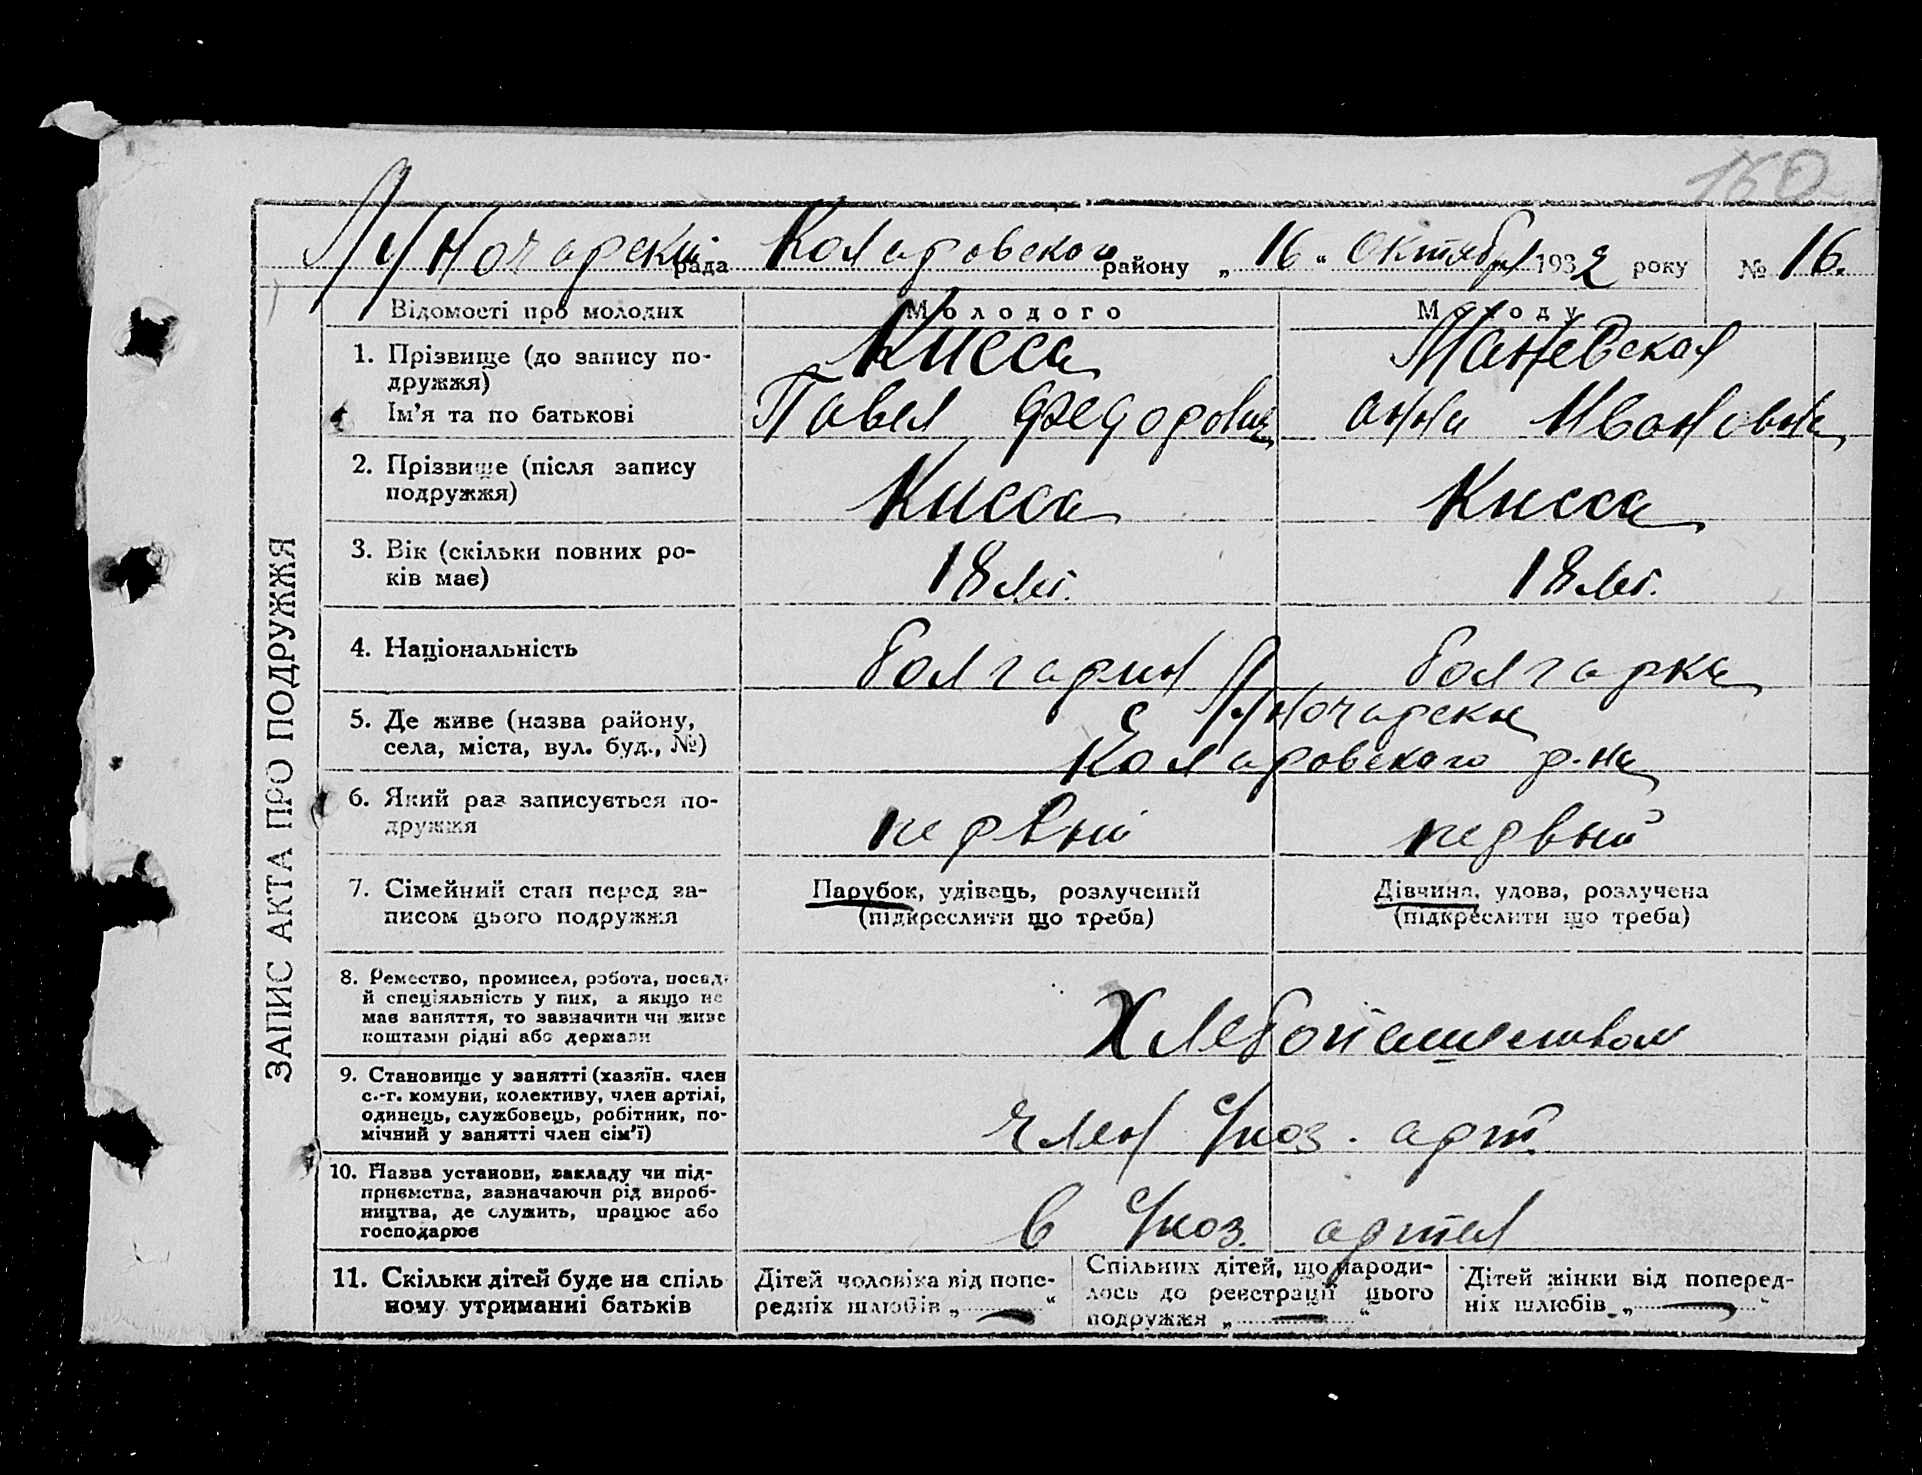 160
Луночарский рада Коларовского району „ 16 “ октября 1932 року № 16.
ЗАПИС АКТА ПРО ПОДРУЖЖЯ
Відомості про молодих Молодого Молоду
1. Прізвище (до запису по-
дружжя) Кисса Маневская
Ім'я та по батькові Павел Федорович Анна Ивановна
2. Прізвище (після запису
подружжя) Кисса Кисса
3. Вік (скільки повних ро-
ків має) 18 лет. 18 лет.
4. Національність болгарин болгарка
5. Де живе (назва району, с Луночарски
села, міста, вул. буд., №) Коларовского р-на
6. Який раз записується по-
дружжя первый первый
7. Сімейний стан перед за- Парубок, удівець, розлучений Дівчина, удова, розлучена
писом цього подружжя (підкреслити що треба) (підкреслити що треба)
8. Ремество, промисел, робота, посад.
й спеціяльність у них, а якщо не
має заняття, то зазначити чи живе Хлебопашеством
коштами рідні або держави
9. Становище у занятті (хазяїн. член
с.-г. комуни, колективу, член артілі,
одинець, службовець, робітник, по- член с/хоз. арт.
мічний у занятті член сім'ї)
10. Назва установи, закладу чи під-
приємства, зазначаючи рід вироб-
ництва, де служить, працює або в с/хоз. артел
господарює
11. Скільки дітей буде на спіль
ному утриманні батьків
Дітей чоловіка від попе-
редніх шлюбів „ — “
Спільних дітей, що народи-
лось до реєстрації цього
подружжя „ — “
Дітей жінки від поперед-
ніх шлюбів „ — “